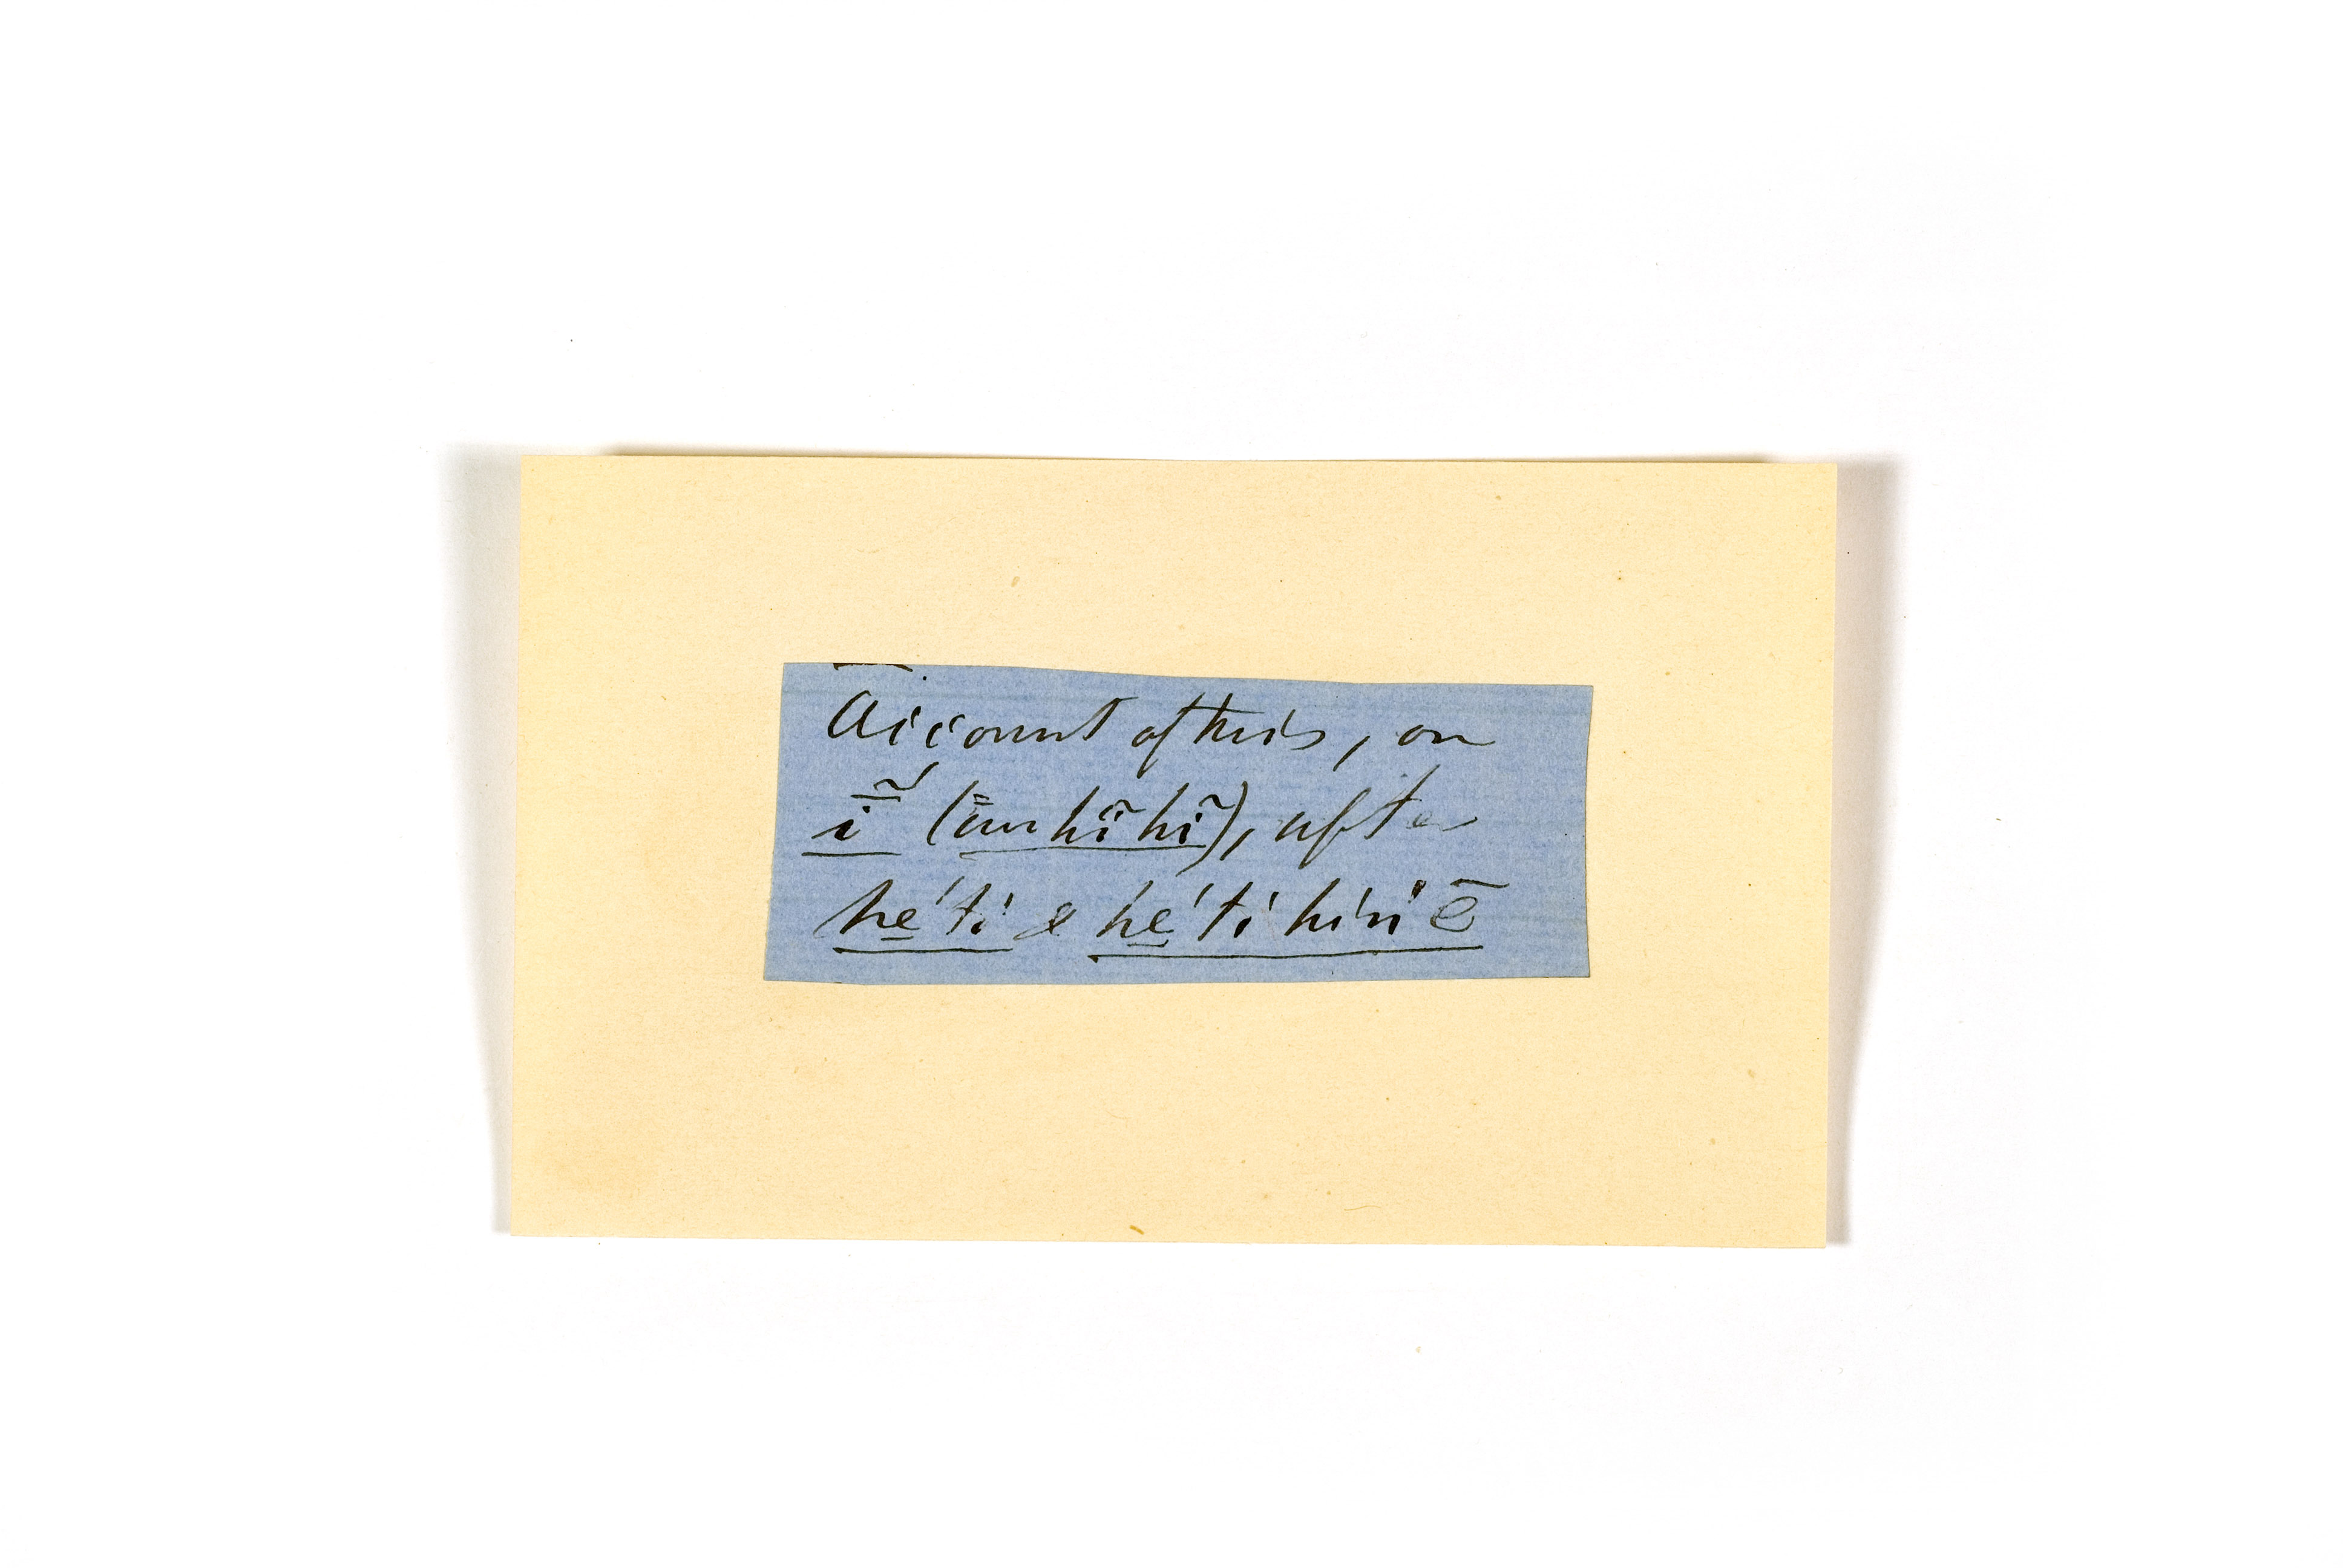 Account of this, on
ĩ̄́ (ā̄un hĩhĩ), after
he̱'ti & he̱'ti hini ē